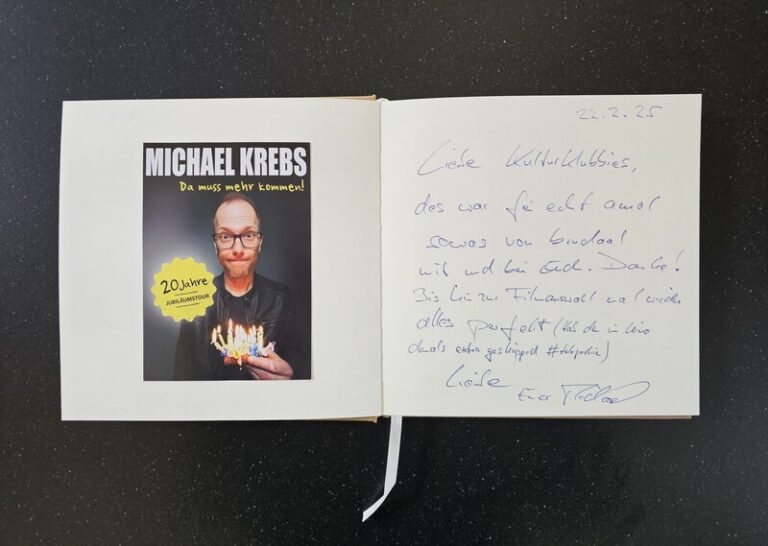 MICHAEL KREBS
Da muss mehr kommen!
20 Jahre
JUBILÄUMSTOUR
22.2.25
Liebe KulturKlubbies,
des war fei echt amol
sowas von brudaal
mit und bei Euch. Danke!
Bis hin zur Filmauswahl mal wieder
alles perfekt (Hab den im Kino
damals extra geskipped #telepathie)
Liebe
Euer Michael